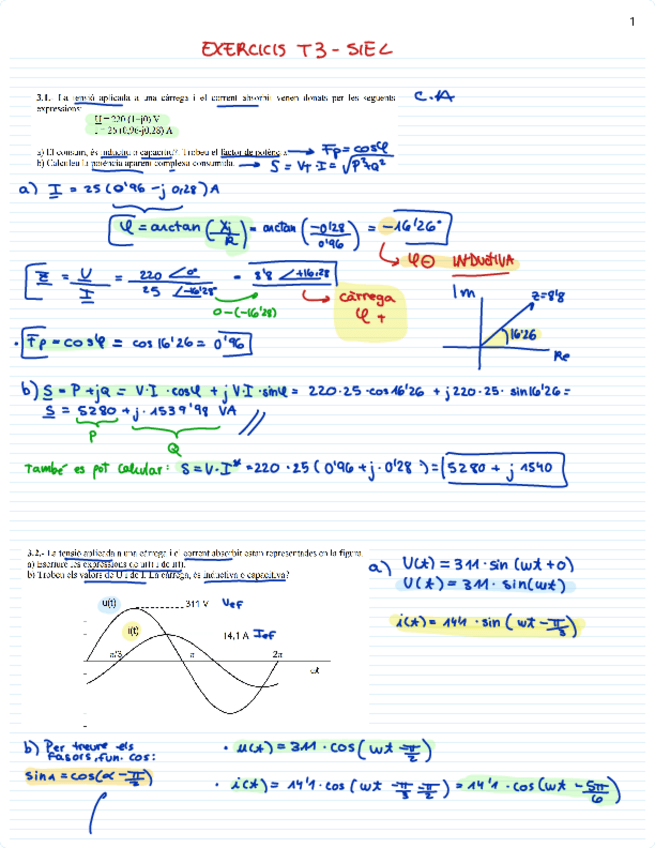 1
EXERCICIS T3 - SIEC
3.1. La tensió aplicada a una càrrega i el corrent absorbit venen donats per les següents
expressions:
U = 220 (1+j0) V
I = 25 (0,96-j0,28) A
C.A
a) El consum, és inductiu o capacitiu? Trobeu el factor de potència → Fp = cosφ
b) Calculeu la potència aparent complexa consumida. → S = V·I = √P²+Q²
a) I = 25 (0'96 - j 0,28) A
φ = arctan (Xj/R) = arctan (-0'28/0'96) = -16'26°
↳ φ⊖ INDUCTIVA
Z = U/I = 220 ∠0° / 25 ∠-16'28° = 8'8 ∠+16,28
0-(-16'28)
càrrega
φ +
Im
Z=8'8
16'26
Re
· Fp = cosφ = cos 16'26 = 0'96
b) S = P + jQ = V·I·cosφ + j V·I·sinφ = 220·25·cos16'26 + j 220·25·sin16'26 =
S = 5280 + j·1539'98 VA
P
Q
També es pot calcular: S = V·I* = 220·25 (0'96 + j·0'28) = 5280 + j 1540
3.2.- La tensió aplicada a una càrrega i el corrent absorbit estan representades en la figura.
a) Escriure les expressions de u(t) i de i(t).
b) Trobeu els valors de U i de I. La càrrega, és inductiva o capacitiva?
a) U(t) = 311·sin (wt+0)
U(t) = 311·sin(wt)
i(t) = 14'1·sin (wt - π/3)
u(t)
311 V
Uef
i(t)
14,1 A
Ief
π/3
π
2π
ωt
b) Per treure els
fasors, fun. cos:
sinα = cos(α - π/2)
· u(t) = 311·cos (wt - π/2)
· i(t) = 14'1·cos (wt - π/3 - π/2) = 14'1·cos (wt - 5π/6)